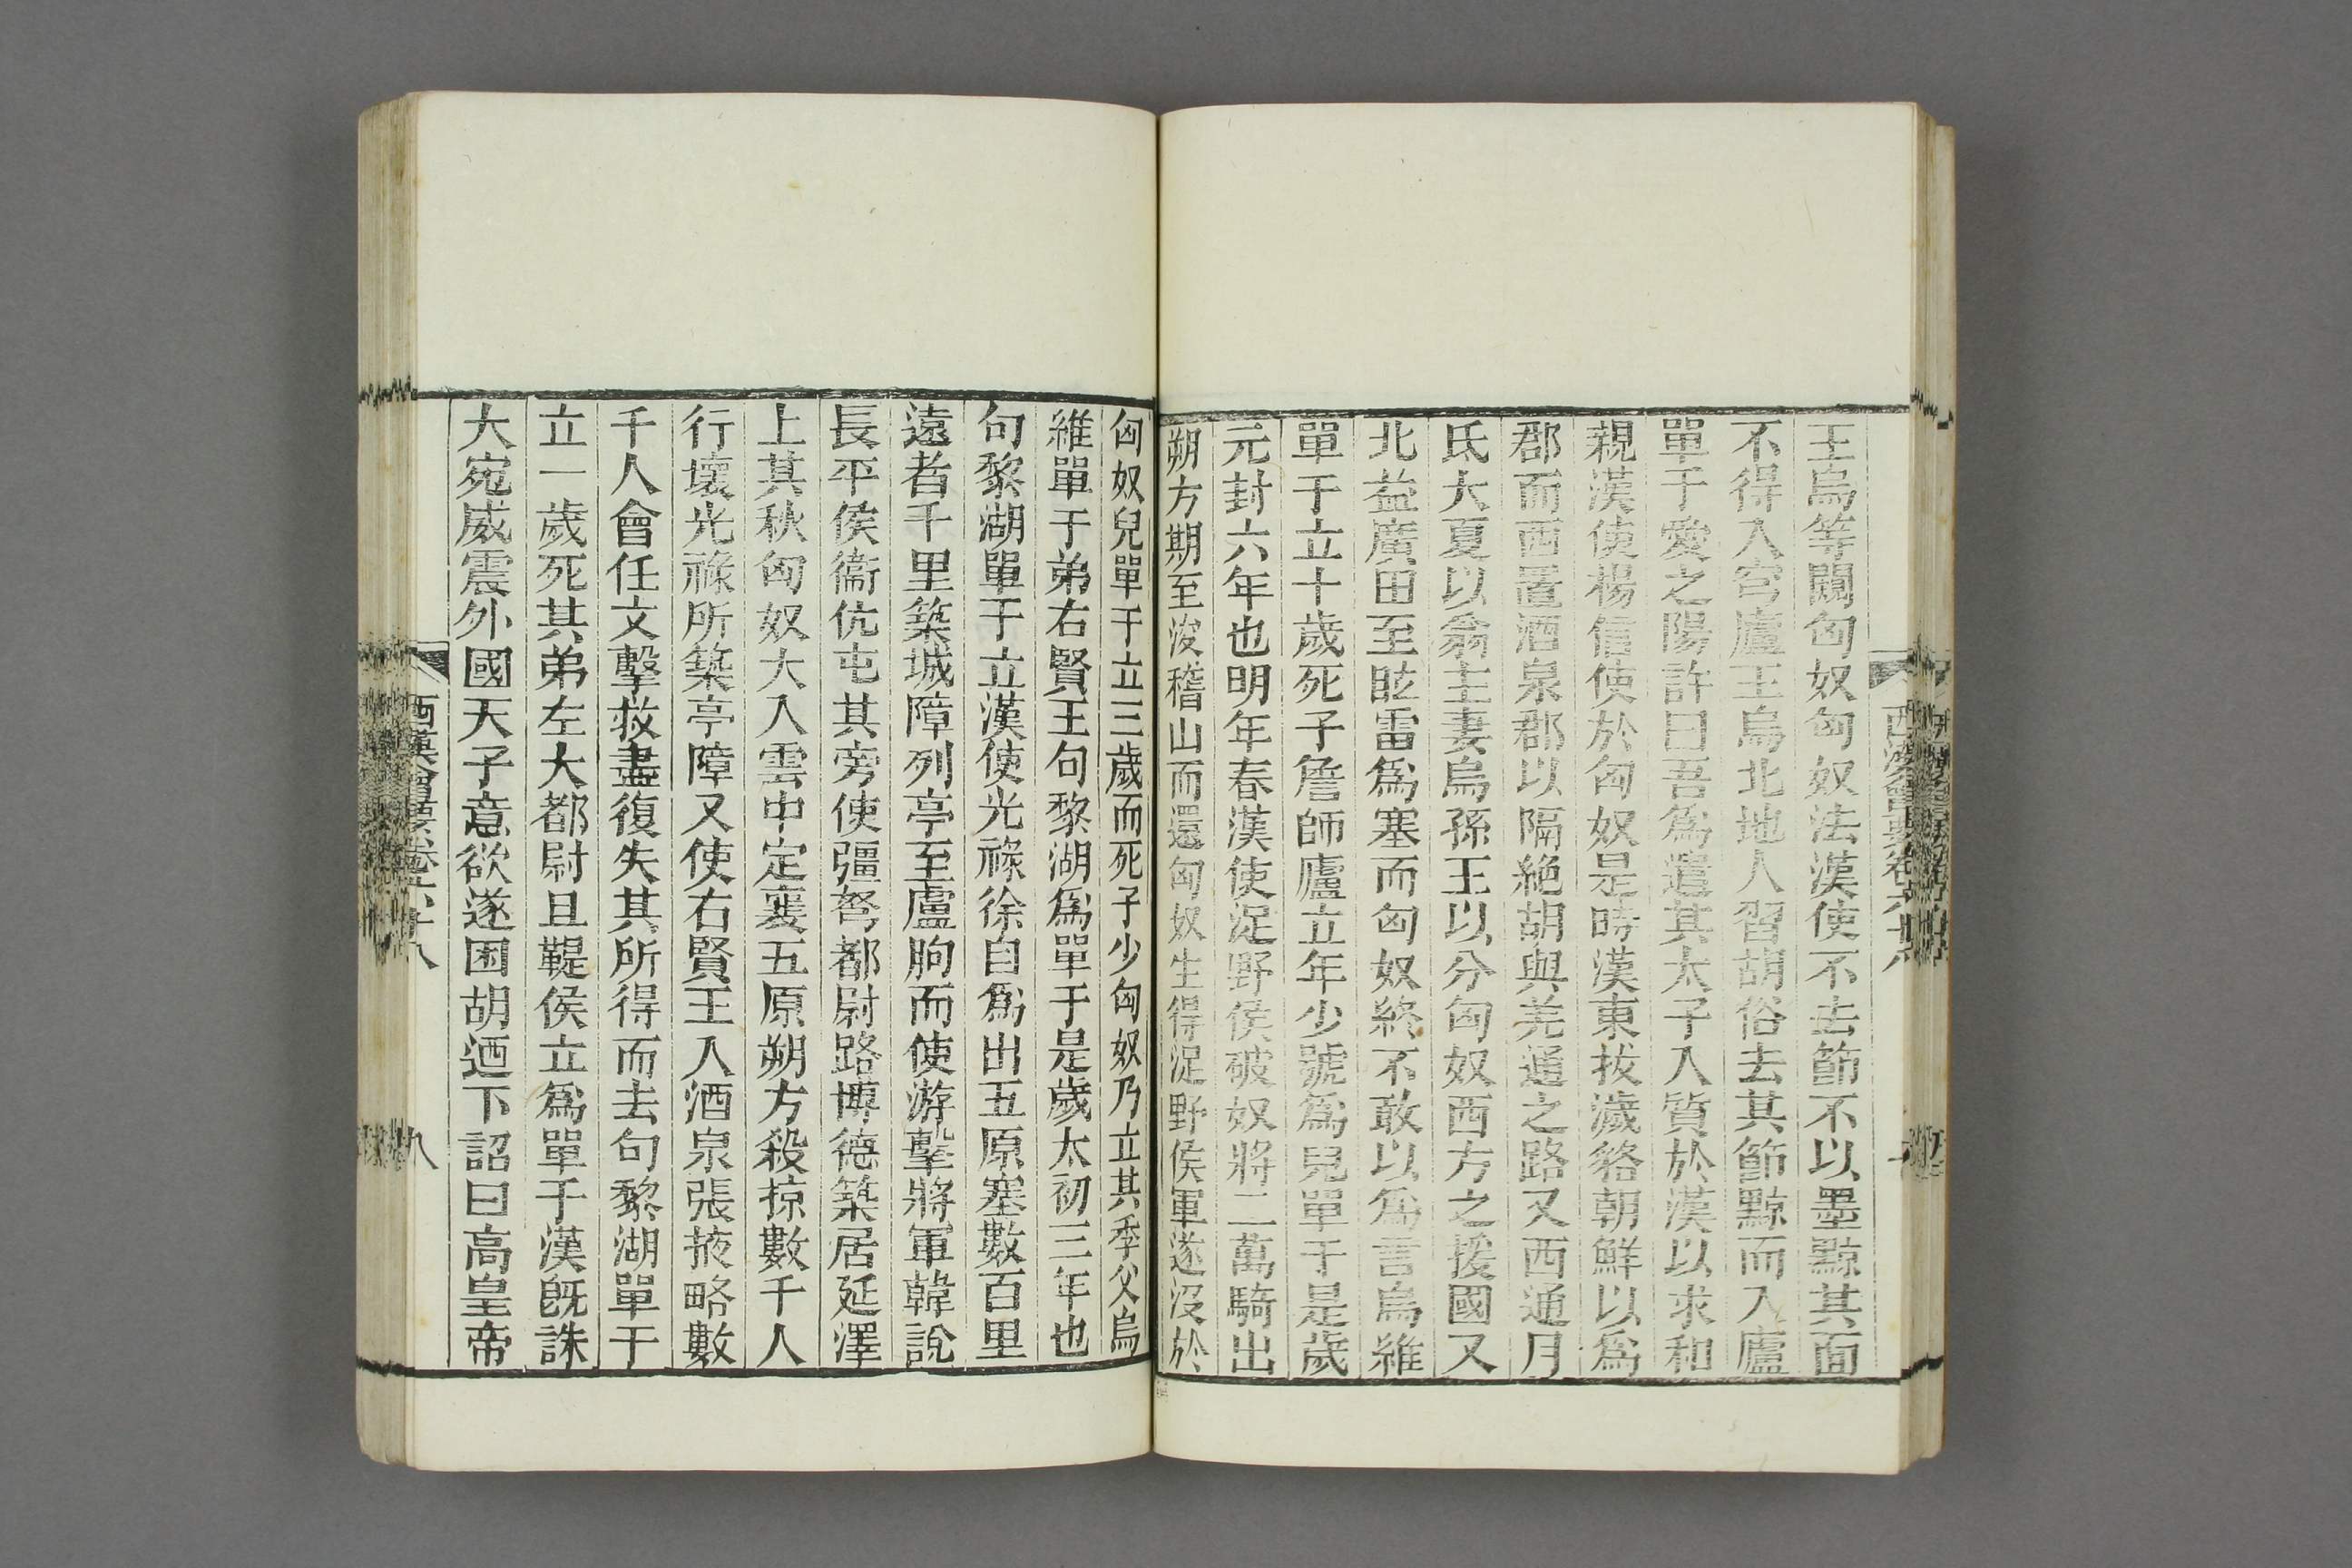 王烏等闚匈奴匈奴法漢使不去節不以墨黥其面
不得入穹廬王烏北地人習胡俗去其節黥面入廬
單于愛之陽許曰吾爲遣其太子入質於漢以求和
親漢使楊信使於匈奴是時漢東拔濊貉朝鮮以爲
郡而西置酒泉郡以隔絶胡與羌通之路又西通月
氐大夏以翁主妻烏孫王以分匈奴西方之援國又
北益廣田至眩雷爲塞而匈奴終不敢以爲言烏維
單于立十歲死子詹師廬立年少號爲兒單于是歲
元封六年也明年春漢使浞野侯破奴將二萬騎出
朔方期至浚稽山而還匈奴生得浞野侯軍遂沒於
匈奴兒單于立三歲而死子少匈奴乃立其季父烏
維單于弟右賢王句黎湖爲單于是歲太初三年也
句黎湖單于立漢使光祿徐自爲出五原塞數百里
遠者千里築城障列亭至盧朐而使游擊將軍韓說
長平侯衞伉屯其旁使彊弩都尉路博德築居延澤
上其秋匈奴大入雲中定襄五原朔方殺掠數千人
行壞光祿所築亭障又使右賢王入酒泉張掖略數
千人會任文擊救盡復失其所得而去句黎湖單于
立一歲死其弟左大都尉且鞮侯立爲單于漢旣誅
大宛威震外國天子意欲遂困胡迺下詔曰高皇帝
西漢會要卷六十八
八